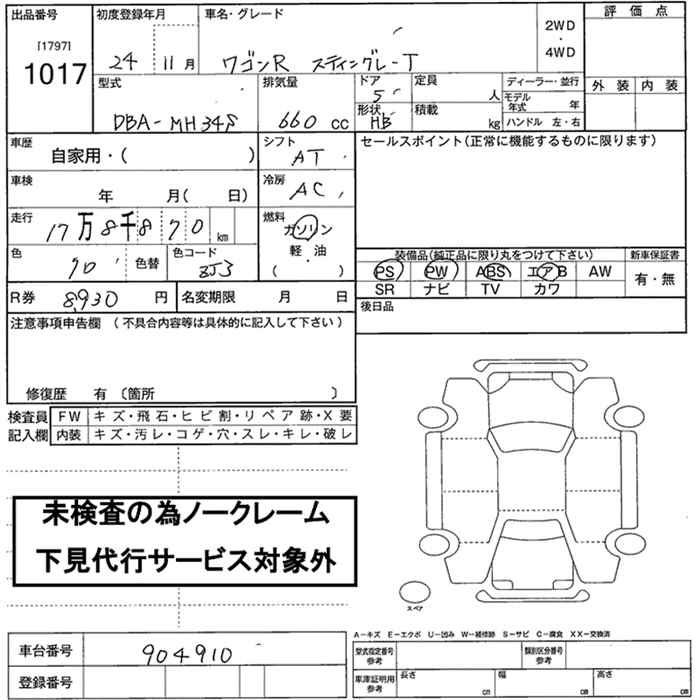 出品番号 初度登録年月 車名・グレード 評価点
[1797]
1017 24 11月 ワゴンR スティングレーT 2WD・4WD
型式 排気量 ドア 定員 ディーラー・並行 外装 内装
5 人 モデル年式 年
DBA-MH34S 660cc 形状 HB 積載 kg ハンドル 左・右
車歴 自家用・( ) シフト AT セールスポイント(正常に機能するものに限ります)
車検 年 月( 日) 冷房 AC
走行 17万8千870km 燃料 ガソリン
軽・油
( )
色 色替 色コード ZJ3
装備品(純正品に限り丸をつけて下さい) 新車保証書
PS PW ABS エアB AW 有・無
SR ナビ TV カワ
R券 8,930円 名変期限 月 日 後日品
注意事項申告欄(不具合内容等は具体的に記入して下さい)
修復歴 有〔箇所 〕
検査員 FW キズ・飛石・ヒビ割・リペア跡・X要
記入欄 内装 キズ・汚レ・コゲ・穴・スレ・キレ・破レ
未検査の為ノークレーム
下見代行サービス対象外
スペア
A−キズ E−エクボ U−凹み W−補修跡 S−サビ C−腐食 XX−交換済
車台番号 904910 型式指定番号 参考 類別区分番号 参考
登録番号 車庫証明用 参考 長さ cm 幅 cm 高さ cm